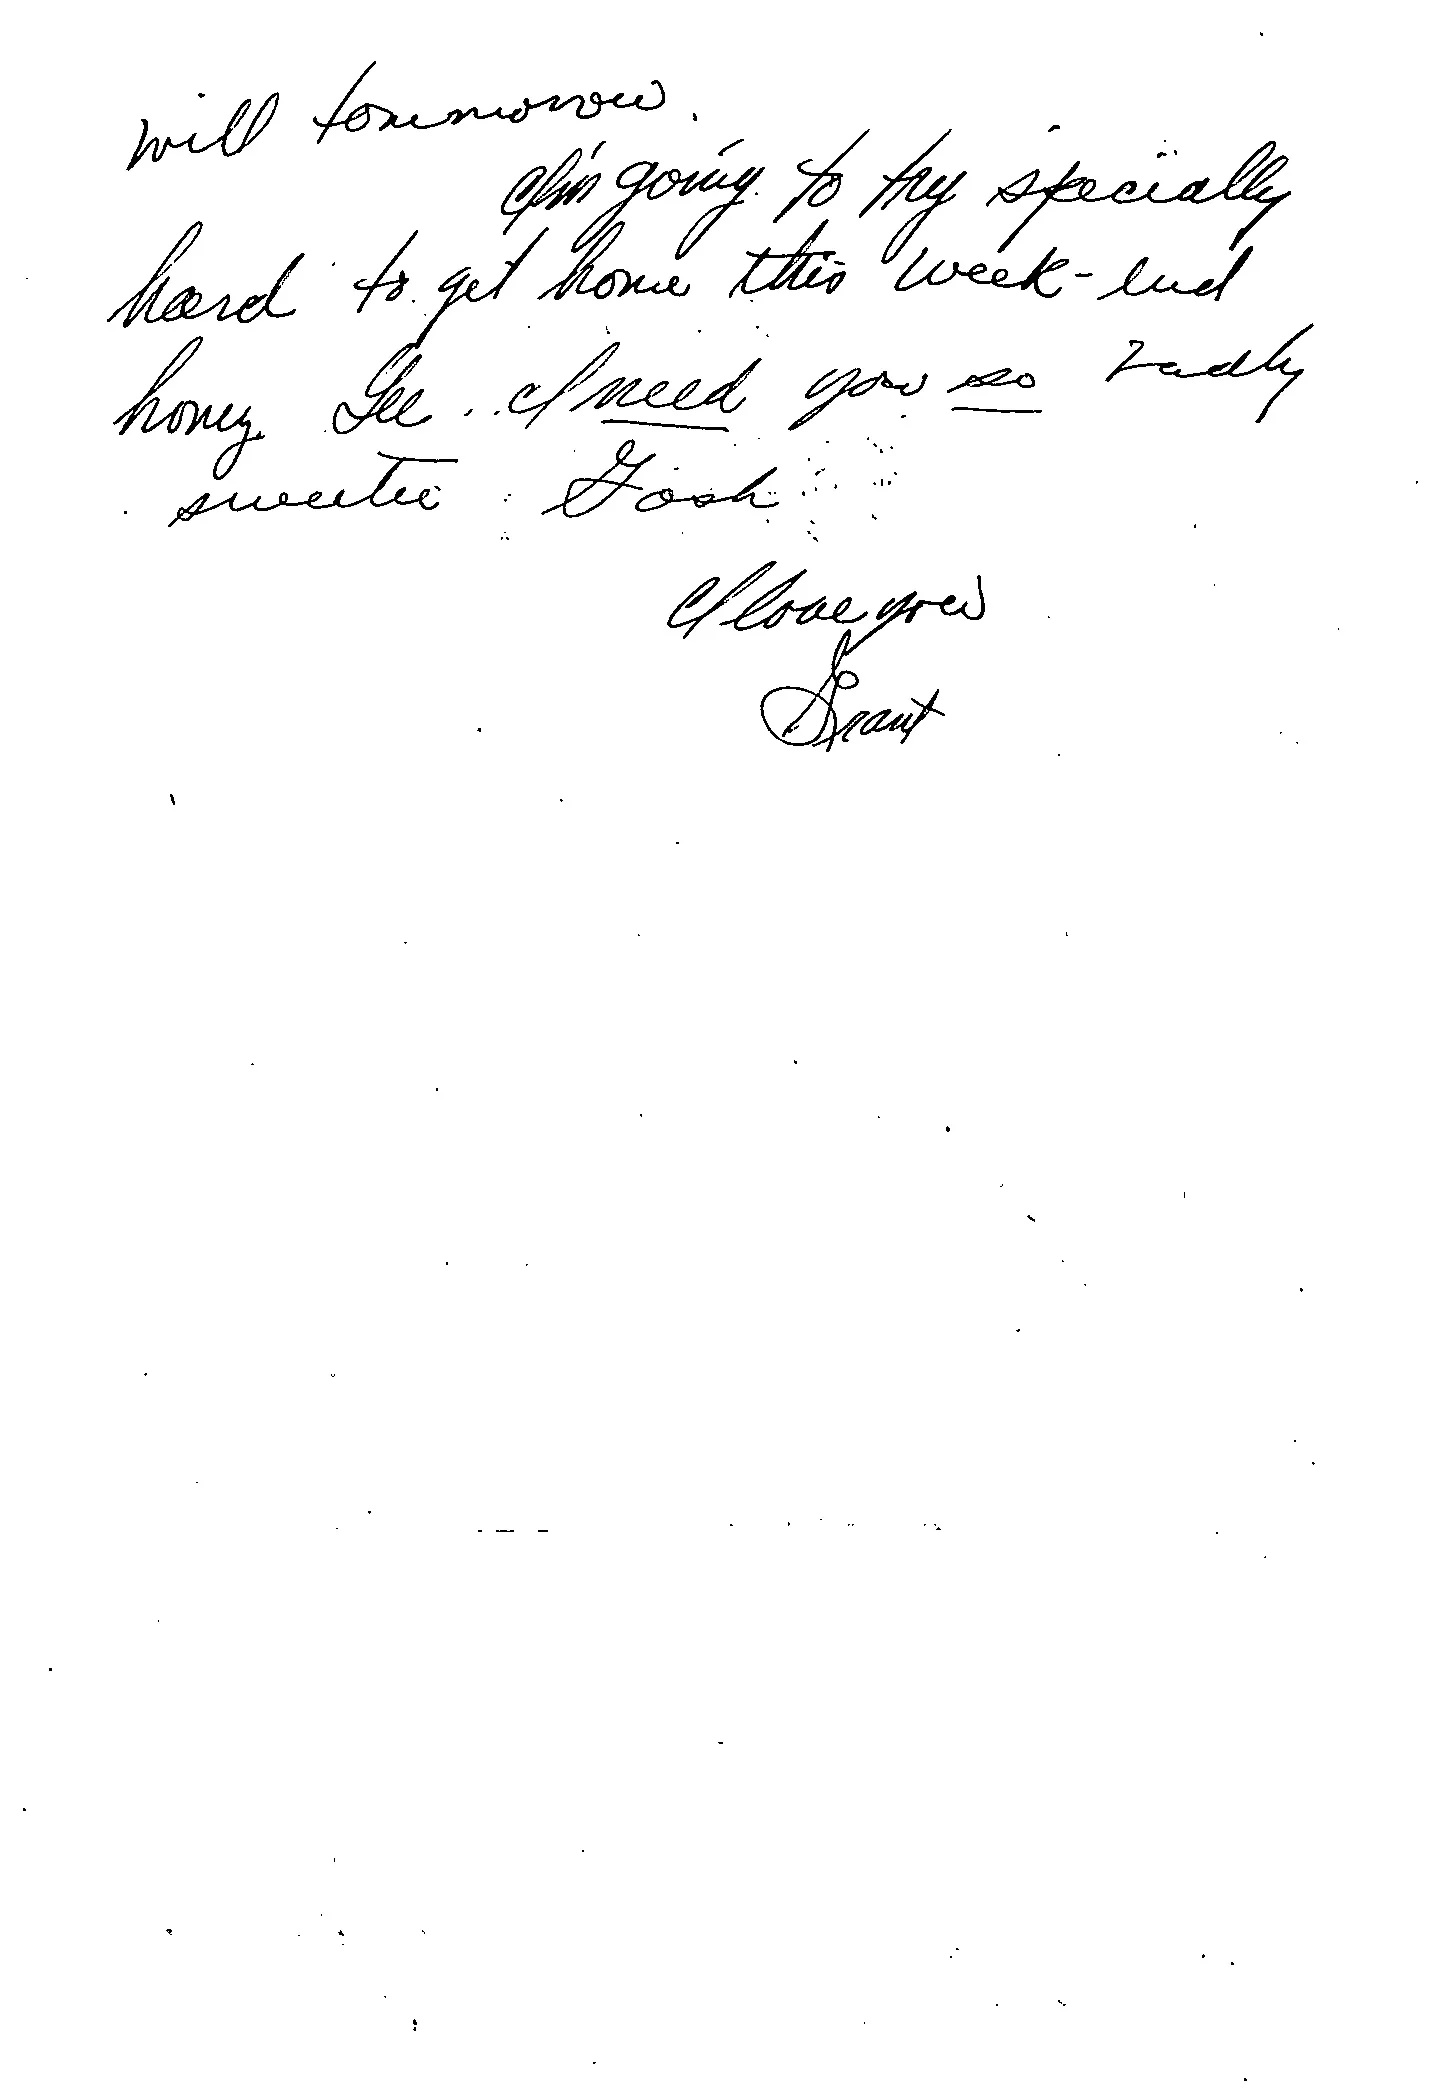 will tommorow.
I'm going to try specially
hard to get home this week-end
honey. Gee.. I need you so badly
sweetie Gosh
I love you
Grant